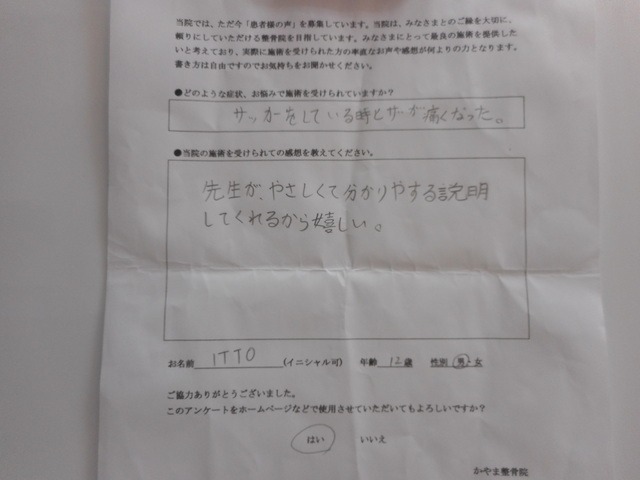 当院では、ただ今「患者様の声」を募集しています。当院は、みなさまとのご縁を大切に、
頼りにしていただける整骨院を目指しています。みなさまにとって最良の施術を提供した
いと考えており、実際に施術を受けられた方の率直なお声や感想が何よりの力となります。
書き方は自由ですのでお気持ちをお聞かせください。
●どのような症状、お悩みで施術を受けられていますか?
サッカーをしている時と 痛くなった。
●当院の施術を受けられての感想を教えてください。
先生が、やさしくて分かりやする説明
してくれるから嬉しい。
お名前 ITTO (イニシャル可) 年齢 12歳 性別 男・女
ご協力ありがとうございました。
このアンケートをホームページなどで使用させていただいてもよろしいですか?
はい いいえ
かやま整骨院